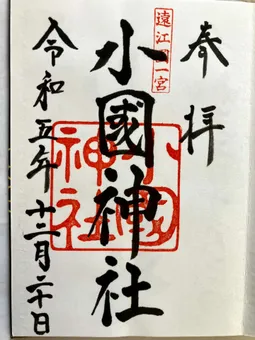 奉拝
遠江國一宮
小國神社
小國神社
令和五年十二月二十日